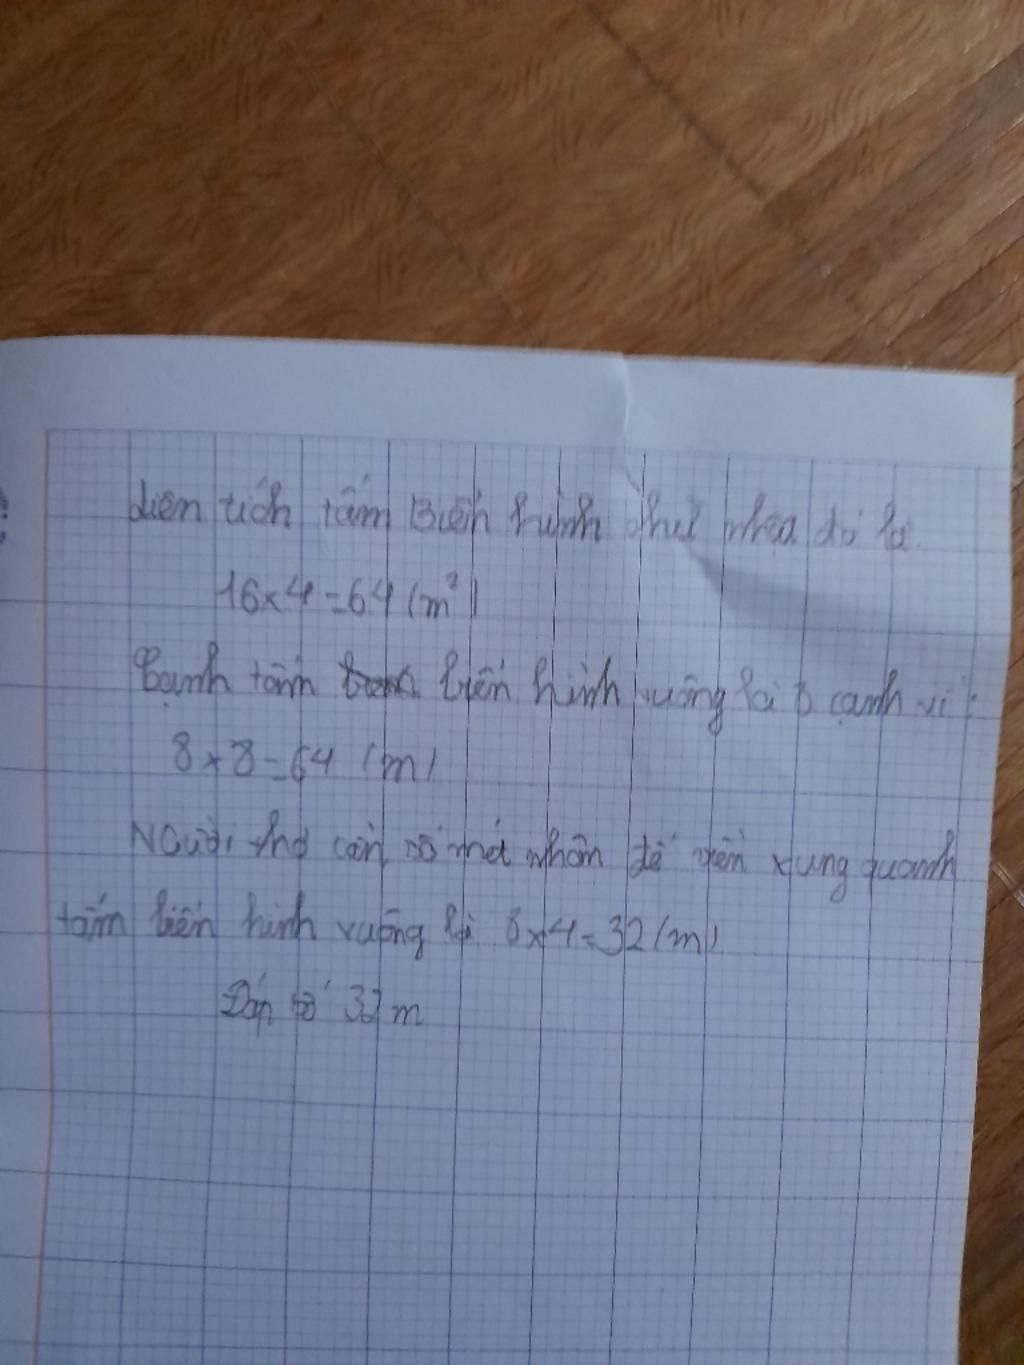 diện tích tấm Biển hình chữ nhật đó là
16 x 4 = 64 (m²)
Cạnh tấm biển hình vuông là 8 cạnh vì:
8 x 8 = 64 (m)
Người thợ cần số mét nhôm để viền xung quanh
tấm biển hình vuông là 8 x 4 = 32 (m)
Đáp số 32 m